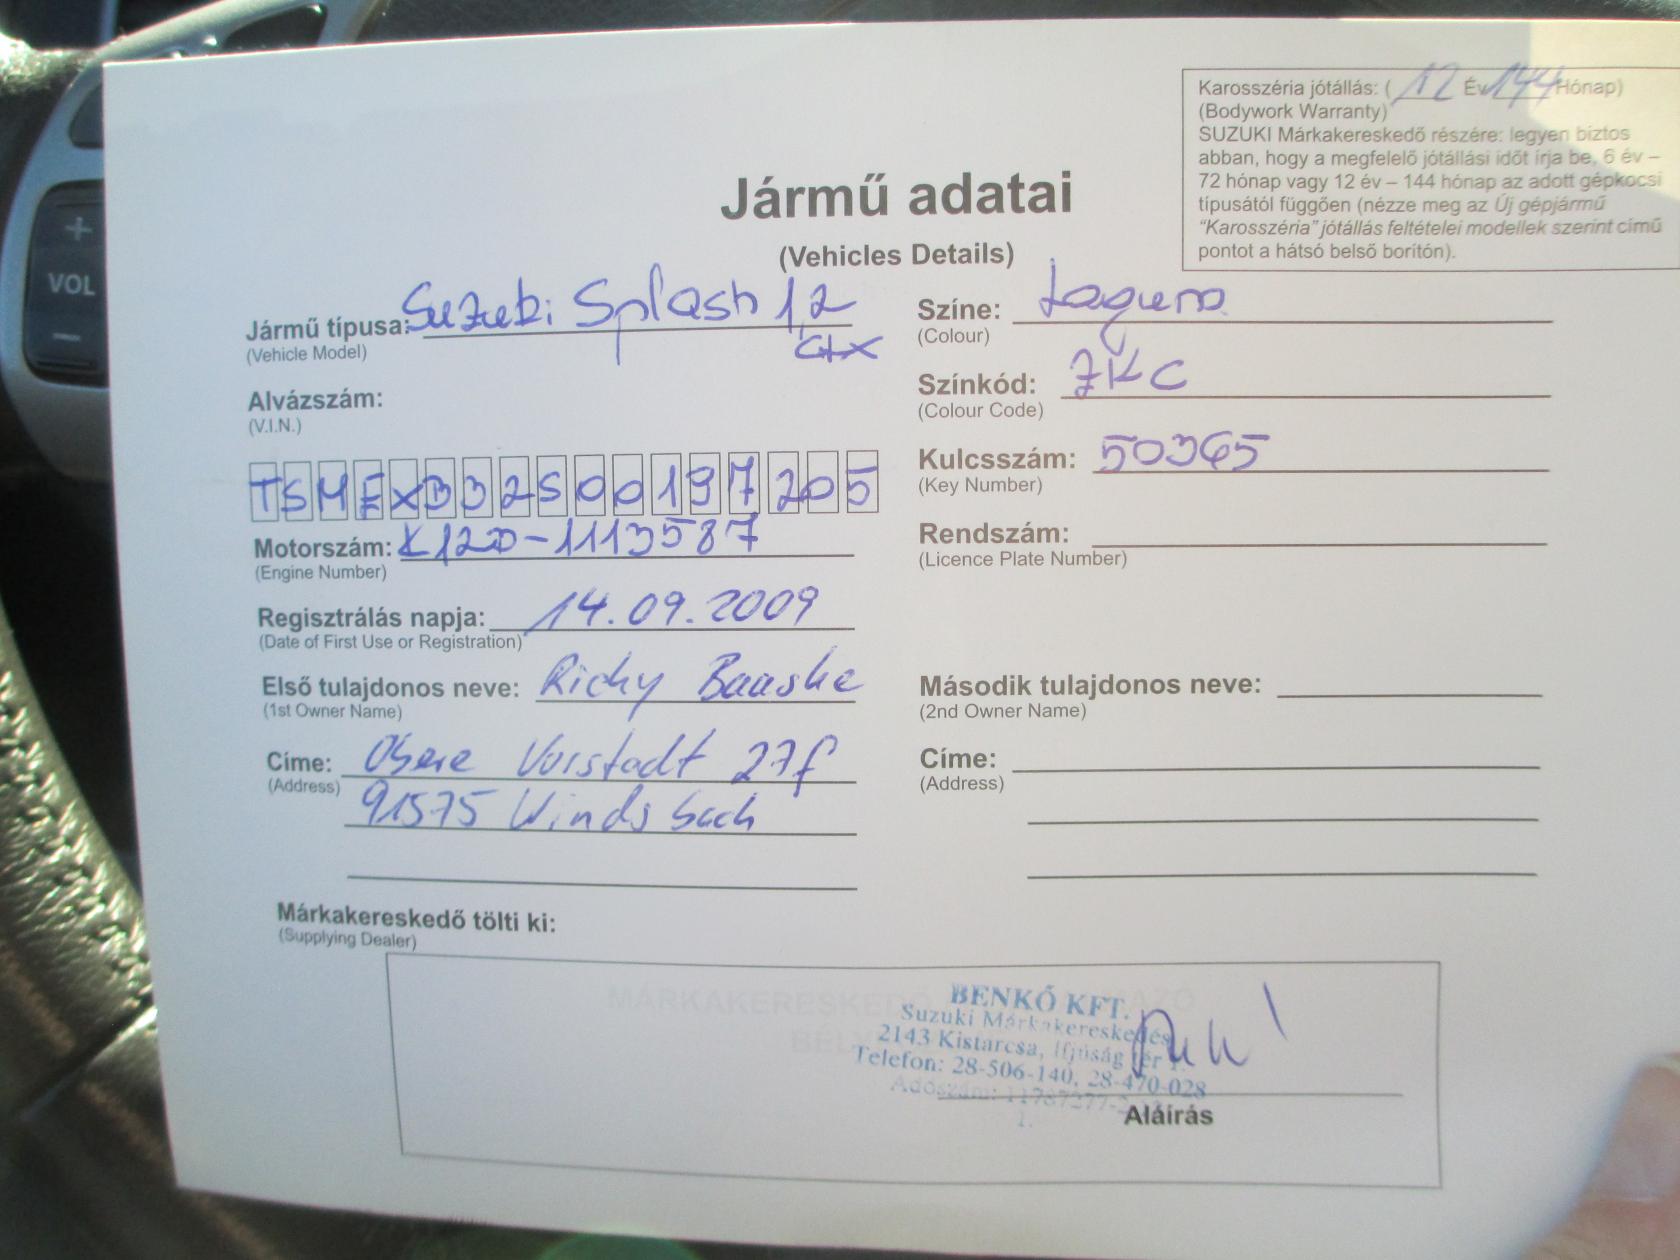 Karosszéria jótállás: ( 12 Év 144 Hónap)
(Bodywork Warranty)
SUZUKI Márkakereskedő részére: legyen biztos
abban, hogy a megfelelő jótállási időt írja be, 6 év –
72 hónap vagy 12 év – 144 hónap az adott gépkocsi
típusától függően (nézze meg az Új gépjármű
"Karosszéria" jótállás feltételei modellek szerint című
pontot a hátsó belső borítón).
Jármű adatai
(Vehicles Details)
Jármű típusa: Suzuki Splash 1,2
GLX
(Vehicle Model)
Színe: Laguna
(Colour)
Alvázszám:
(V.I.N.)
Színkód: ZKC
(Colour Code)
TSMEXB32S00197205
Kulcsszám: 50365
(Key Number)
Motorszám: K12B-1113587
(Engine Number)
Rendszám:
(Licence Plate Number)
Regisztrálás napja: 14.09.2009
(Date of First Use or Registration)
Első tulajdonos neve: Ricky Baaske
(1st Owner Name)
Második tulajdonos neve:
(2nd Owner Name)
Címe: Obere Vorstadt 27f
(Address)
91575 Windsbach
Címe:
(Address)
Márkakereskedő tölti ki:
(Supplying Dealer)
MÁRKAKERESKEDŐ
BENKŐ KFT.
Suzuki Márkakereskedés
2143 Kistarcsa, Ifjúság tér 1.
Telefon: 28-506-140, 28-470-028
Adószám:
1.
Aláírás
VOL
+
–